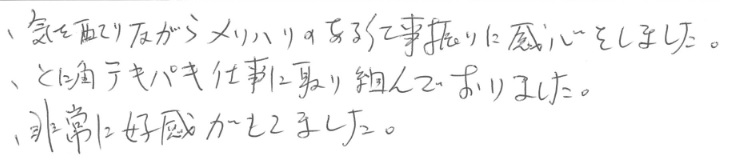 、気を配りながらメリハリのある仕事振りに感心をしました。
、とに角テキパキ仕事に取り組んでおりました。
、非常に好感がもてました。